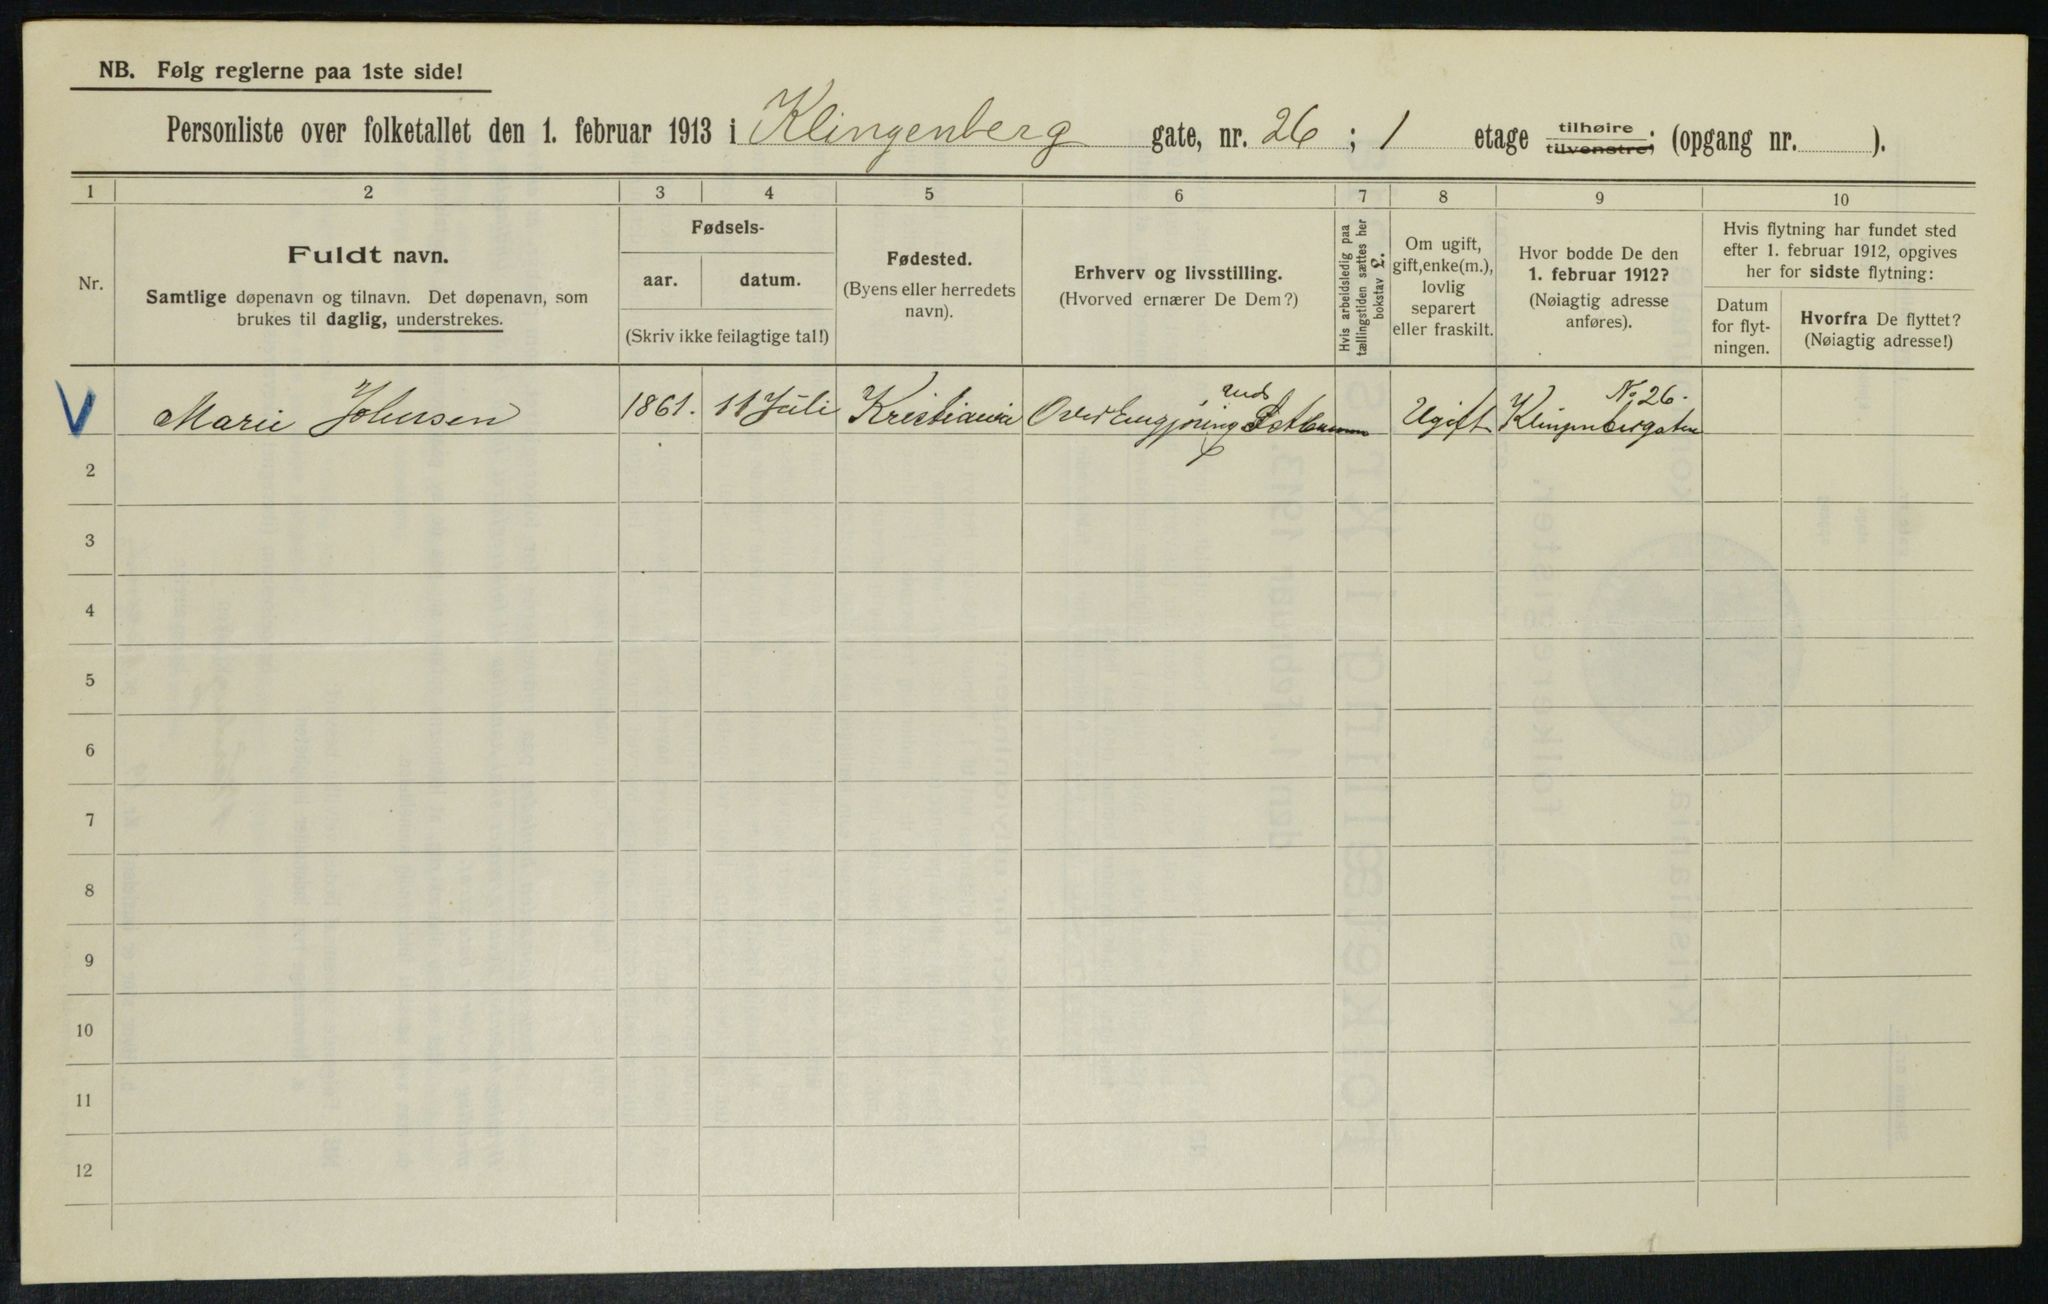 NB. Følg reglerne paa 1ste side!
Personliste over folketallet den 1. februar 1913 i Klingenberg gate, nr. 26 ; 1 etage tilhøire tilvenstre; (opgang nr. ).
1 2 3 4 5 6 7 8 9 10
Nr.
Fuldt navn.
Samtlige døpenavn og tilnavn. Det døpenavn, som
brukes til daglig, understrekes.
Fødsels-
aar. datum.
(Skriv ikke feilagtige tal!)
Fødested.
(Byens eller herredets
navn).
Erhverv og livsstilling.
(Hvorved ernærer De Dem?)
Hvis arbeidsledig paa
tællingstiden sættes her
bokstav L.
Om ugift,
gift, enke(m.),
lovlig
separert
eller fraskilt.
Hvor bodde De den
1. februar 1912?
(Nøiagtig adresse
anføres).
Hvis flytning har fundet sted
efter 1. februar 1912, opgives
her for sidste flytning:
Datum
for flyt-
ningen.
Hvorfra De flyttet?
(Nøiagtig adresse!)
Marie Johnsen 1861. 11 Juli Kristiania Ugift Klingenberggaten No 26.
2
3
4
5
6
7
8
9
10
11
12